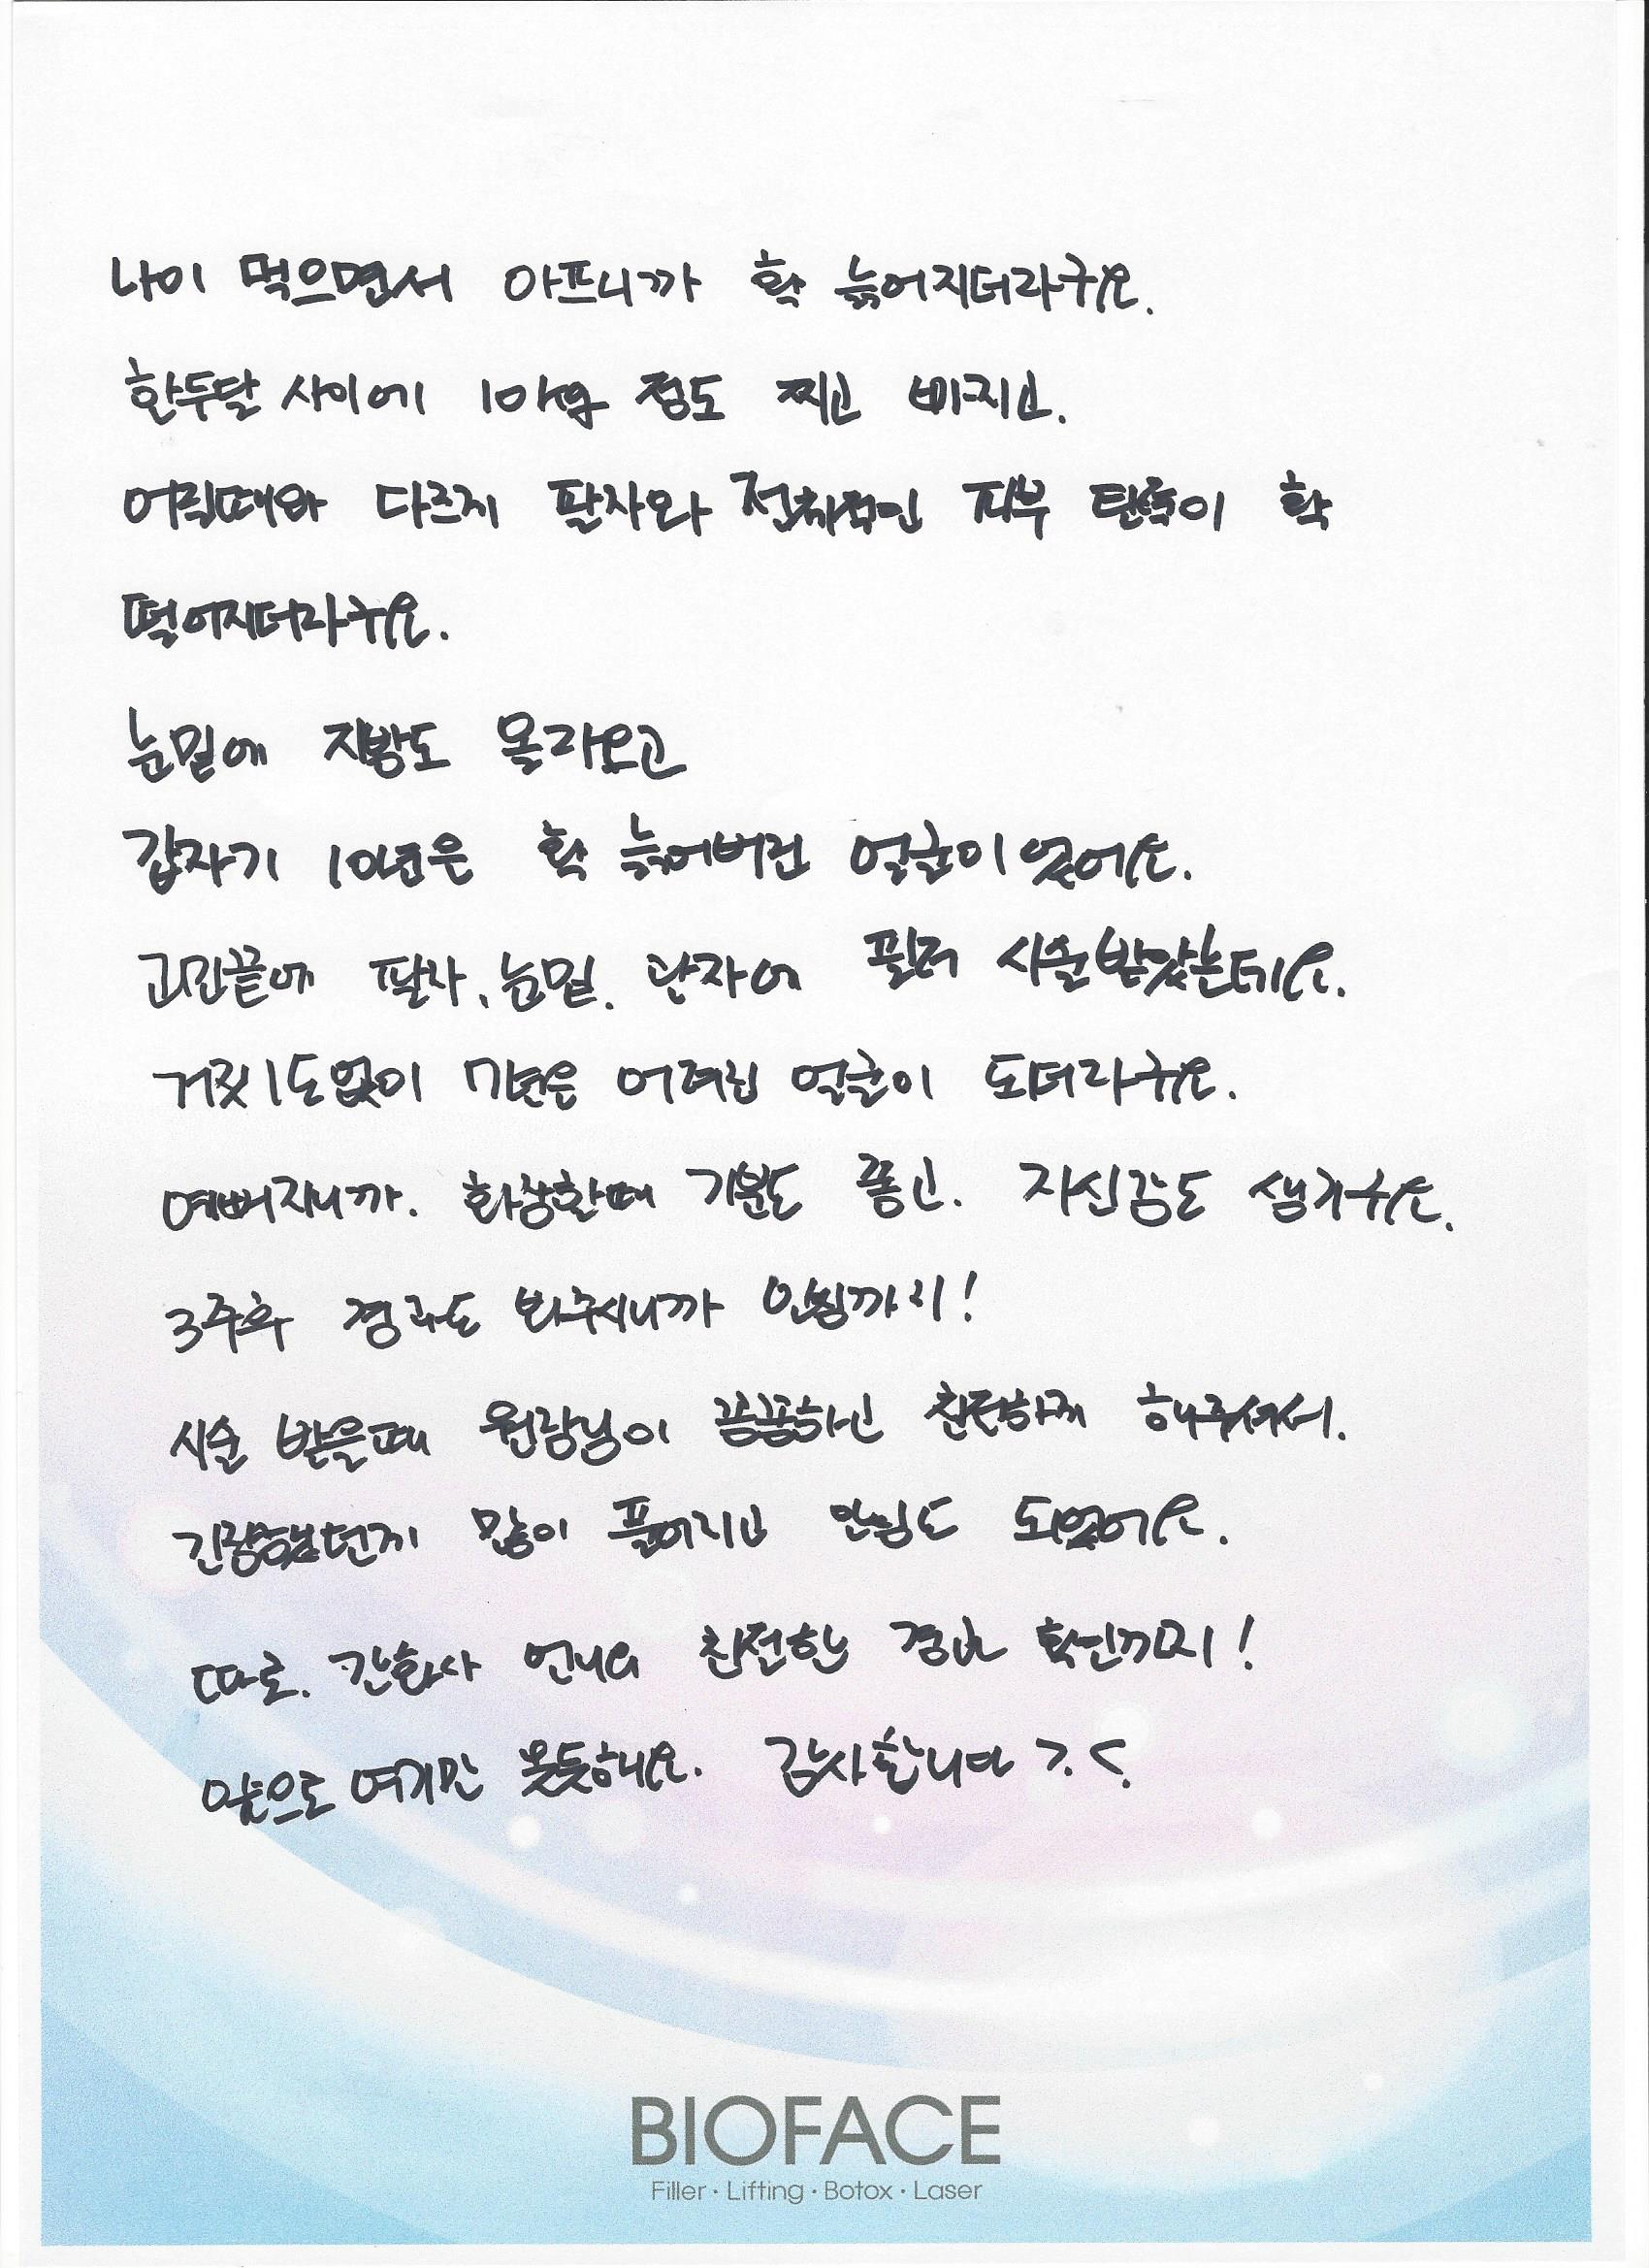 나이 먹으면서 아프니까 확 늙어지더라구요.
한두달 사이에 10kg 정도 찌고 빠지고.
어릴때와 다르게 팔자와 전체적인 피부 탄력이 확
떨어지더라구요.
눈밑에 지방도 올라오고
갑자기 10년은 확 늙어버린 얼굴이 었어요.
고민끝에 팔자, 눈밑. 관자에 필러 시술받았는데요.
거짓1도없이 7년은 어려진 얼굴이 되더라구요.
예뻐지니까. 화장할때 기분도 좋고. 자신감도 생기구요.
3주후 경과도 봐주시니까 안심까지!
시술 받을때 원장님이 꼼꼼하고 친절하게 해주셔서.
긴장했던게 많이 풀어지고 안심도 되었어요.
따로. 간호사 언니의 친절한 경과 확인까지!
앞으로 여기만 올듯해요. 감사합니다 >.<
BIOFACE
Filler · Lifting · Botox · Laser